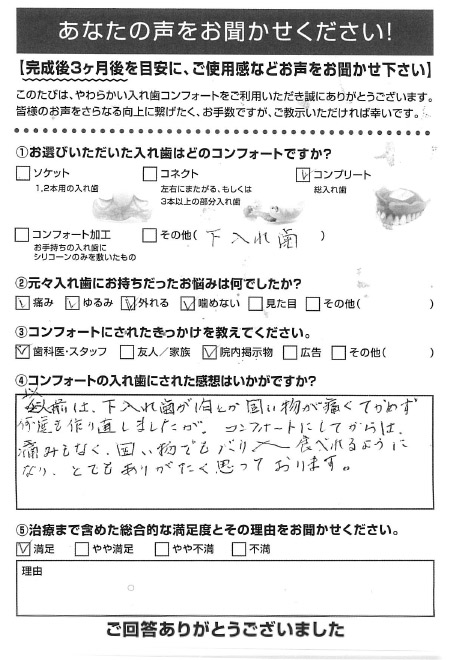 あなたの声をお聞かせください!
【完成後3ヶ月後を目安に、ご使用感などお声をお聞かせ下さい】
このたびは、やわらかい入れ歯コンフォートをご利用いただき誠にありがとうございます。
皆様のお声をさらなる向上に繋げたく、お手数ですが、ご教示いただければ幸いです。
①お選びいただいた入れ歯はどのコンフォートですか?
ソケット コネクト コンプリート
1,2本用の入れ歯 左右にまたがる、もしくは 総入れ歯
3本以上の部分入れ歯
コンフォート加工 その他( 下入れ歯 )
お手持ちの入れ歯に
シリコーンのみを敷いたもの
②元々入れ歯にお持ちだったお悩みは何でしたか?
痛み ゆるみ 外れる 噛めない 見た目 その他( )
③コンフォートにされたきっかけを教えてください。
歯科医・スタッフ 友人/家族 院内掲示物 広告 その他( )
④コンフォートの入れ歯にされた感想はいかがですか?
以前は、下入れ歯が肉とか固い物が痛くてかめず
何度も作り直しましたが、コンフォートにしてからは、
痛みもなく、固い物でもバリバリ食べれるように
なり、とてもありがたく思っております。
⑤治療まで含めた総合的な満足度とその理由をお聞かせください。
満足 やや満足 やや不満 不満
理由
ご回答ありがとうございました